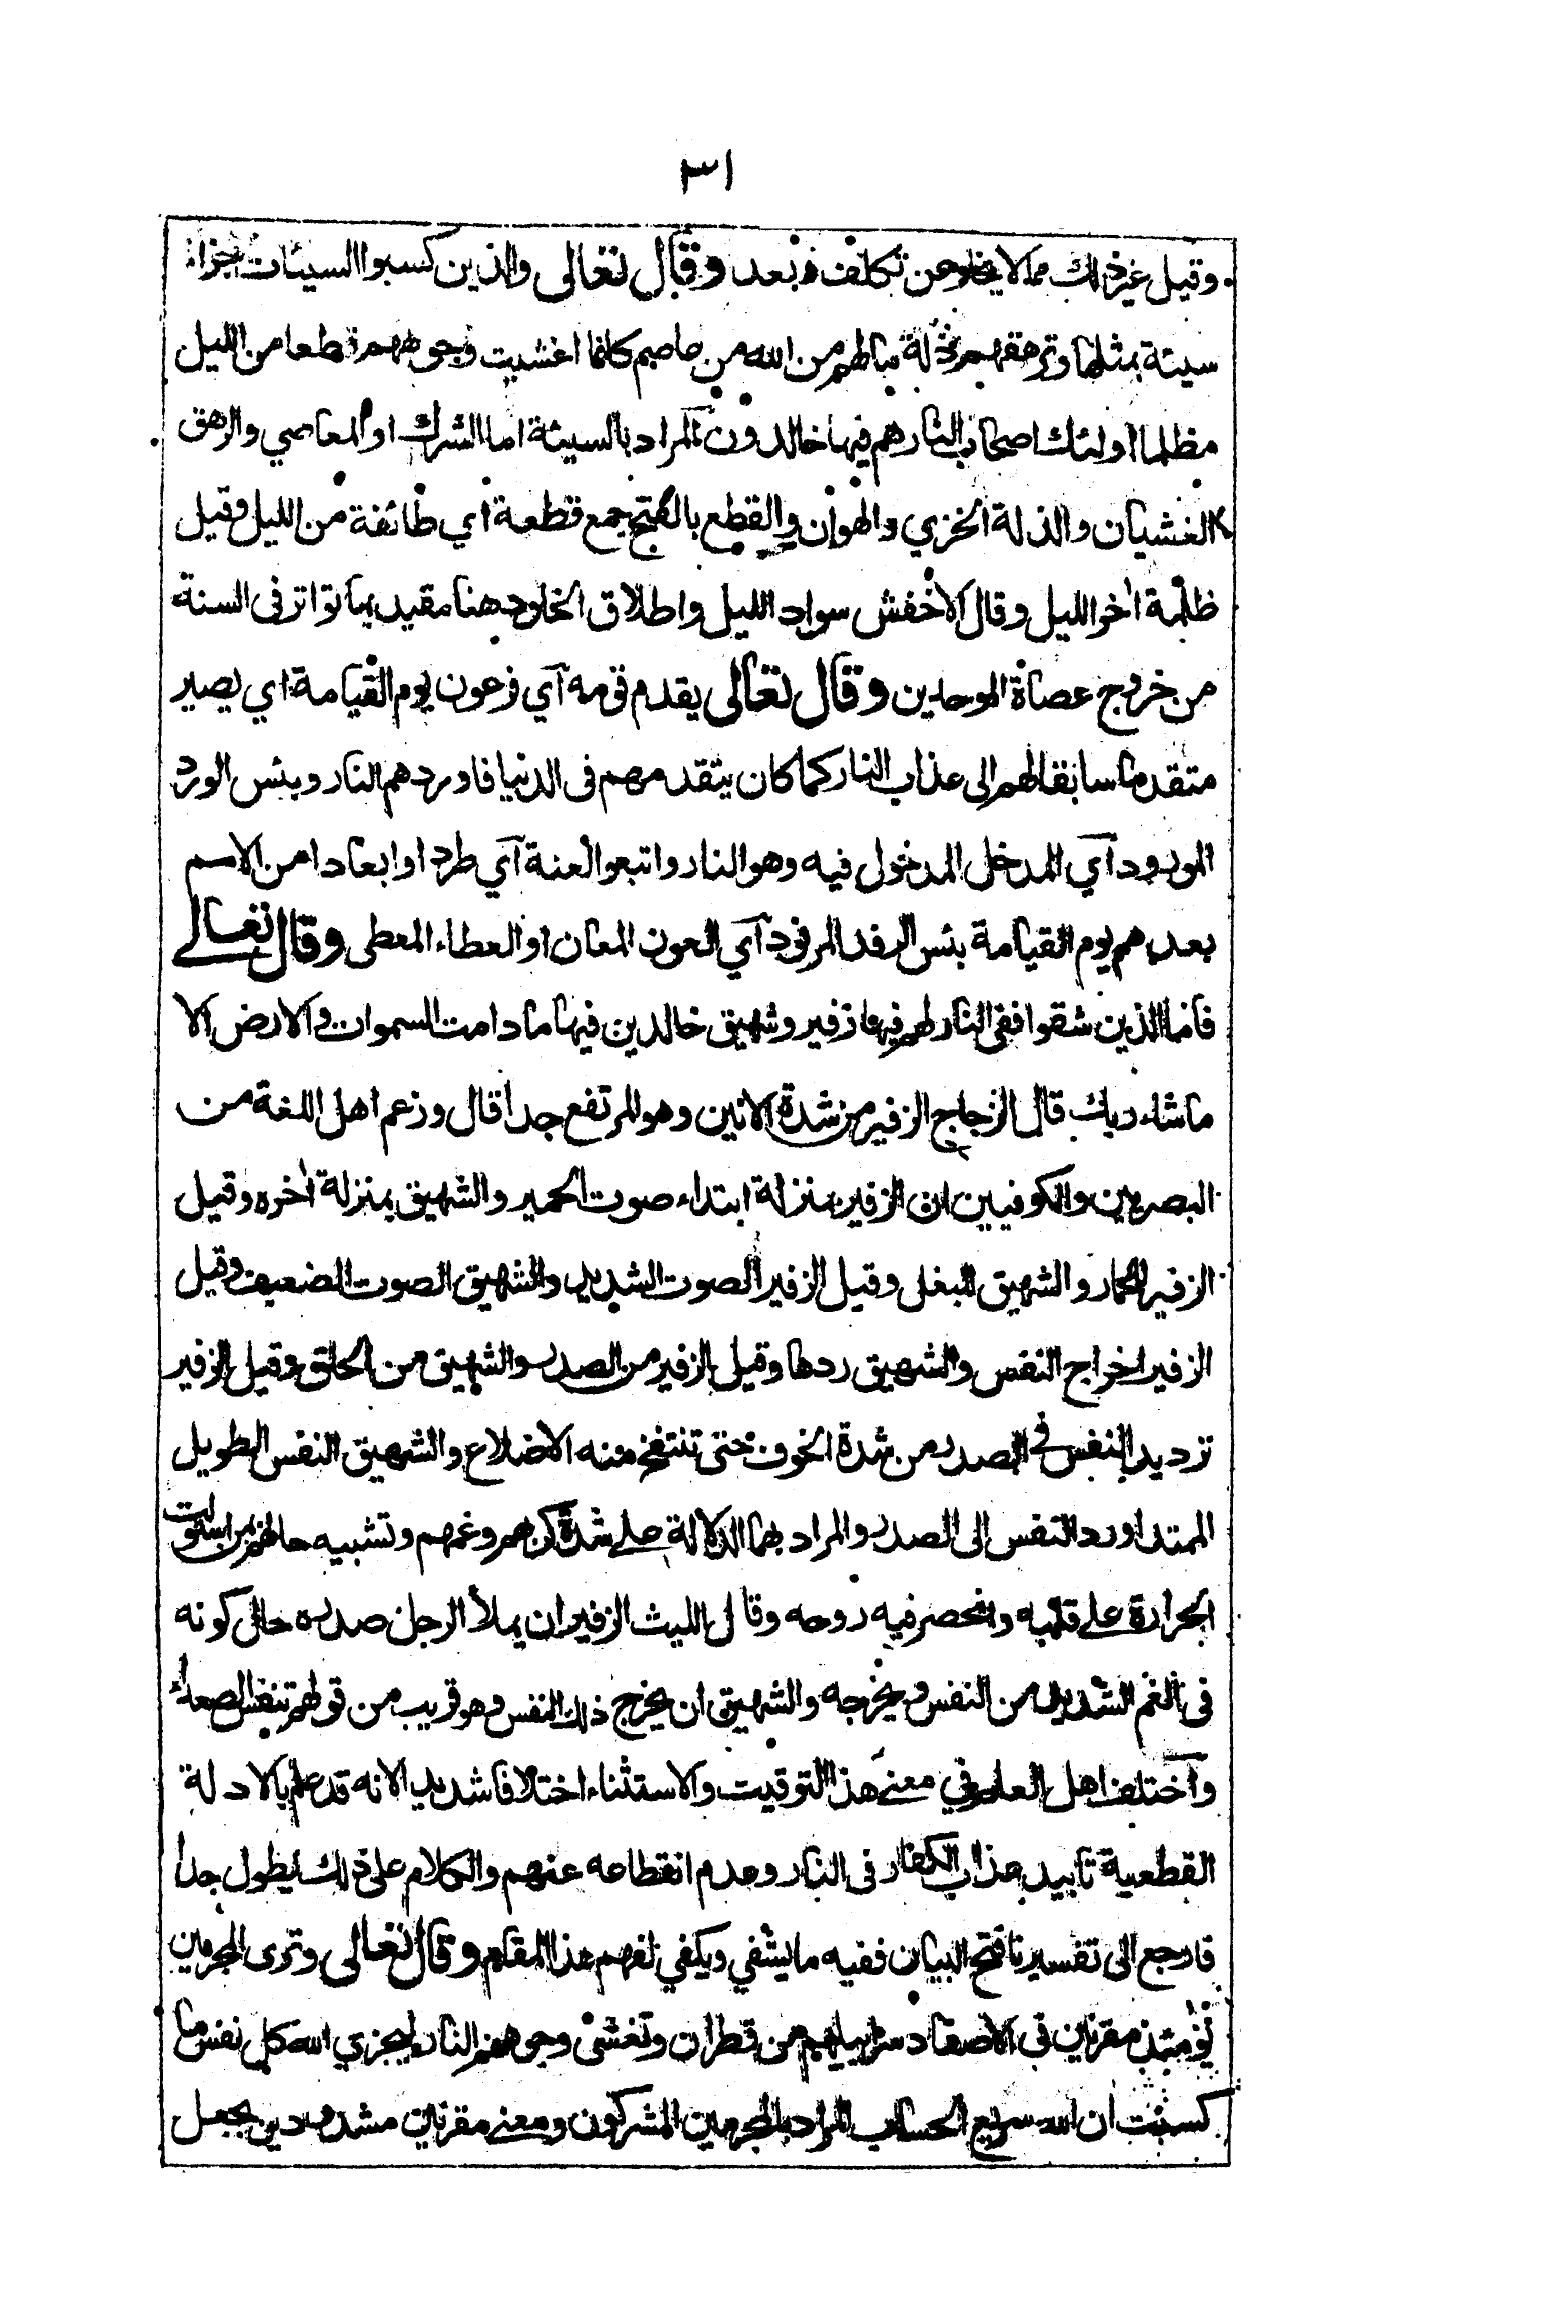 ٣١
وقيل غير ذلك مما لا يخلو من تكلف وبعد وقال تعالى والذين كسبوا السيئات جزاء
سيئة بمثلها وترهقهم ذلة مالهم من الله من عاصم كانما اغشيت وجوههم قطعا من الليل
مظلما اولئك اصحاب النار هم فيها خالدون المراد بالسيئة اما الشرك او المعاصي والرهق
الغشيان والذلة الخزي والهوان والقطع بالفتح جمع قطعة اي طائفة من الليل وقيل
ظلمة اخر الليل وقال الاخفش سواد الليل واطلاق الخلود هنا مقيد بما تواتر فى السنة
من خروج عصاة الموحدين وقال تعالى يقدم قومه آي فرعون يوم القيامة اي يصير
متقدما سابقا لهم الى عذاب النار كما كان يتقدمهم فى الدنيا فاوردهم النار وبئس الورد
المورود آي المدخل المدخول فيه وهو النار واتبعوا لعنة آي طردا وابعادا من الاسم
بعدهم يوم القيامة بئس الرفد المرفود آي العون المعان او العطاء المعطى وقال تعالے
فاما الذين شقوا ففى النار لهم فيها زفير وشهيق خالدين فيها ما دامت السموات والارض الا
ماشاء ربك قال الزجاج الزفير من شدة الانين وهو المرتفع جدا قال وزعم اهل اللغة من
البصريين والكوفيين ان الزفير بمنزلة ابتداء صوت الحمير والشهيق بمنزلة اخره وقيل
الزفير للحمار والشهيق للبغل وقيل الزفير الصوت الشديد والشهيق الصوت الضعيف وقيل
الزفير اخراج النفس والشهيق ردها وقيل الزفير من الصدر والشهيق من الحلق وقيل الزفير
ترديد النفس في الصدر من شدة الخوف حتى تنتفخ منه الاضلاع والشهيق النفس الطويل
الممتد اورد النفس الى الصدر والمراد بهما الدلالة علے شدة كربهم وغمهم وتشبيه حالهم بمن استولت
الحرارة علے قلبه وانحصر فيه روحه وقال الليث الزفير ان يملأ الرجل صدره حال كونه
فى الغم الشديد من النفس ويخرجه والشهيق ان يخرج ذلك النفس وهو قريب من قولهم تنفس الصعداء
وآختلف اهل العلم في معنے هذا التوقيت والاستثناء اختلافا شديدا لانه قد علم بالادلة
القطعية تابيد عذاب الكفار فى النار وعدم انقطاعه عنهم والكلام على ذلك يطول جدا
فارجع الى تفسيرنا فتح البيان ففيه ما يشفي ويكفي لفهم هذا المقام وقال تعالى وترى المجرمين
يومئذ مقرنين فى الاصفاد سرابيلهم من قطران وتغشى وجوههم النار ليجزي الله كل نفس ما
كسبت ان الله سريع الحساب المراد بالمجرمين المشركون ومعنے مقرنين مشدودين بجعل